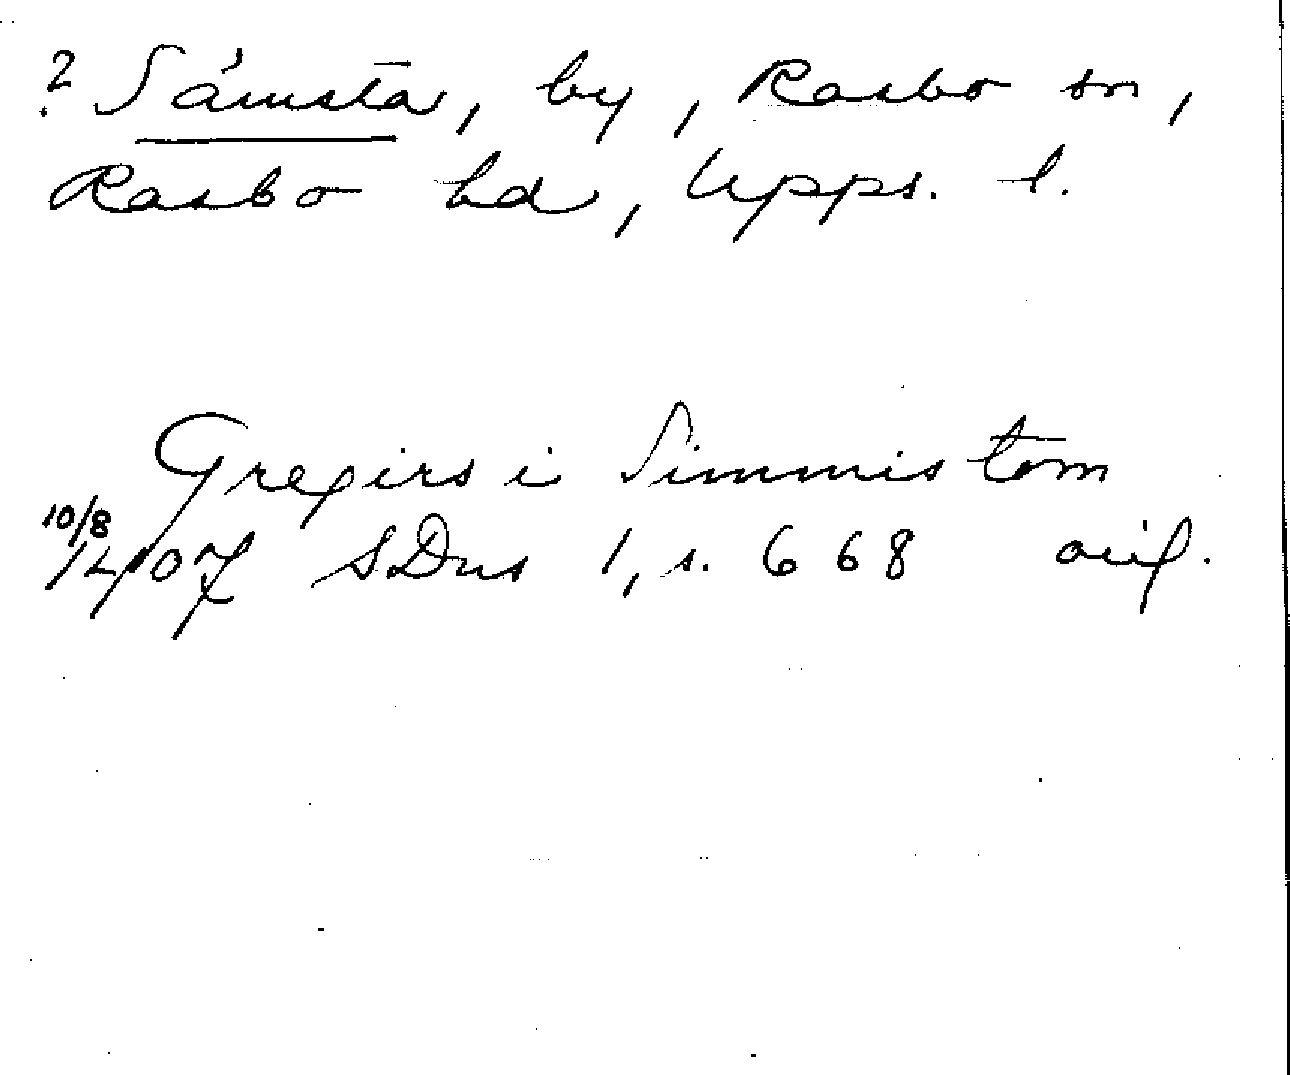 ? Sámsta, by, Rasbo sn,
Rasbo hd, Upps. l.
Gregirs i Simmistom
10/8
1407 SDns 1, s. 668 avf.